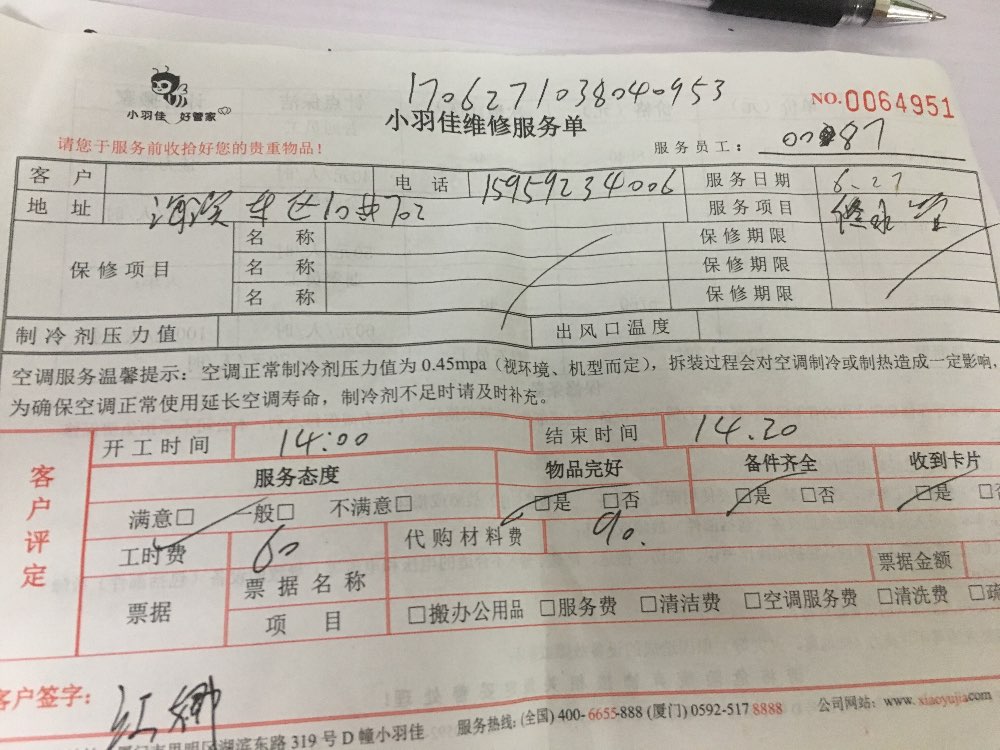 1706271038040953
小羽佳 好管家
NO.0064951
小羽佳维修服务单
请您于服务前收拾好您的贵重物品！
服务员工： 87
客 户 电 话 15959234006 服务日期 6.27
地 址 702 服务项目
保修项目
名 称 保修期限
名 称 保修期限
名 称 保修期限
制冷剂压力值 出风口温度
空调服务温馨提示：空调正常制冷剂压力值为 0.45mpa（视环境、机型而定），拆装过程会对空调制冷或制热造成一定影响，
为确保空调正常使用延长空调寿命，制冷剂不足时请及时补充。
客户评定
开工时间 14:00 结束时间 14.20
服务态度 物品完好 备件齐全 收到卡片
满意□ 一般□ 不满意□ □是 □否 □是 □否 □是 □否
工时费 60 代购材料费 90.
票据 票据名称 票据金额
项 目 □搬办公用品 □服务费 □清洁费 □空调服务费 □清洗费 □疏
客户签字： 江娜
服务热线：(全国) 400-6655-888 (厦门) 0592-517 8888 公司网站：www.xiaoyujia.com
厦门市思明区湖滨东路 319 号 D 幢小羽佳